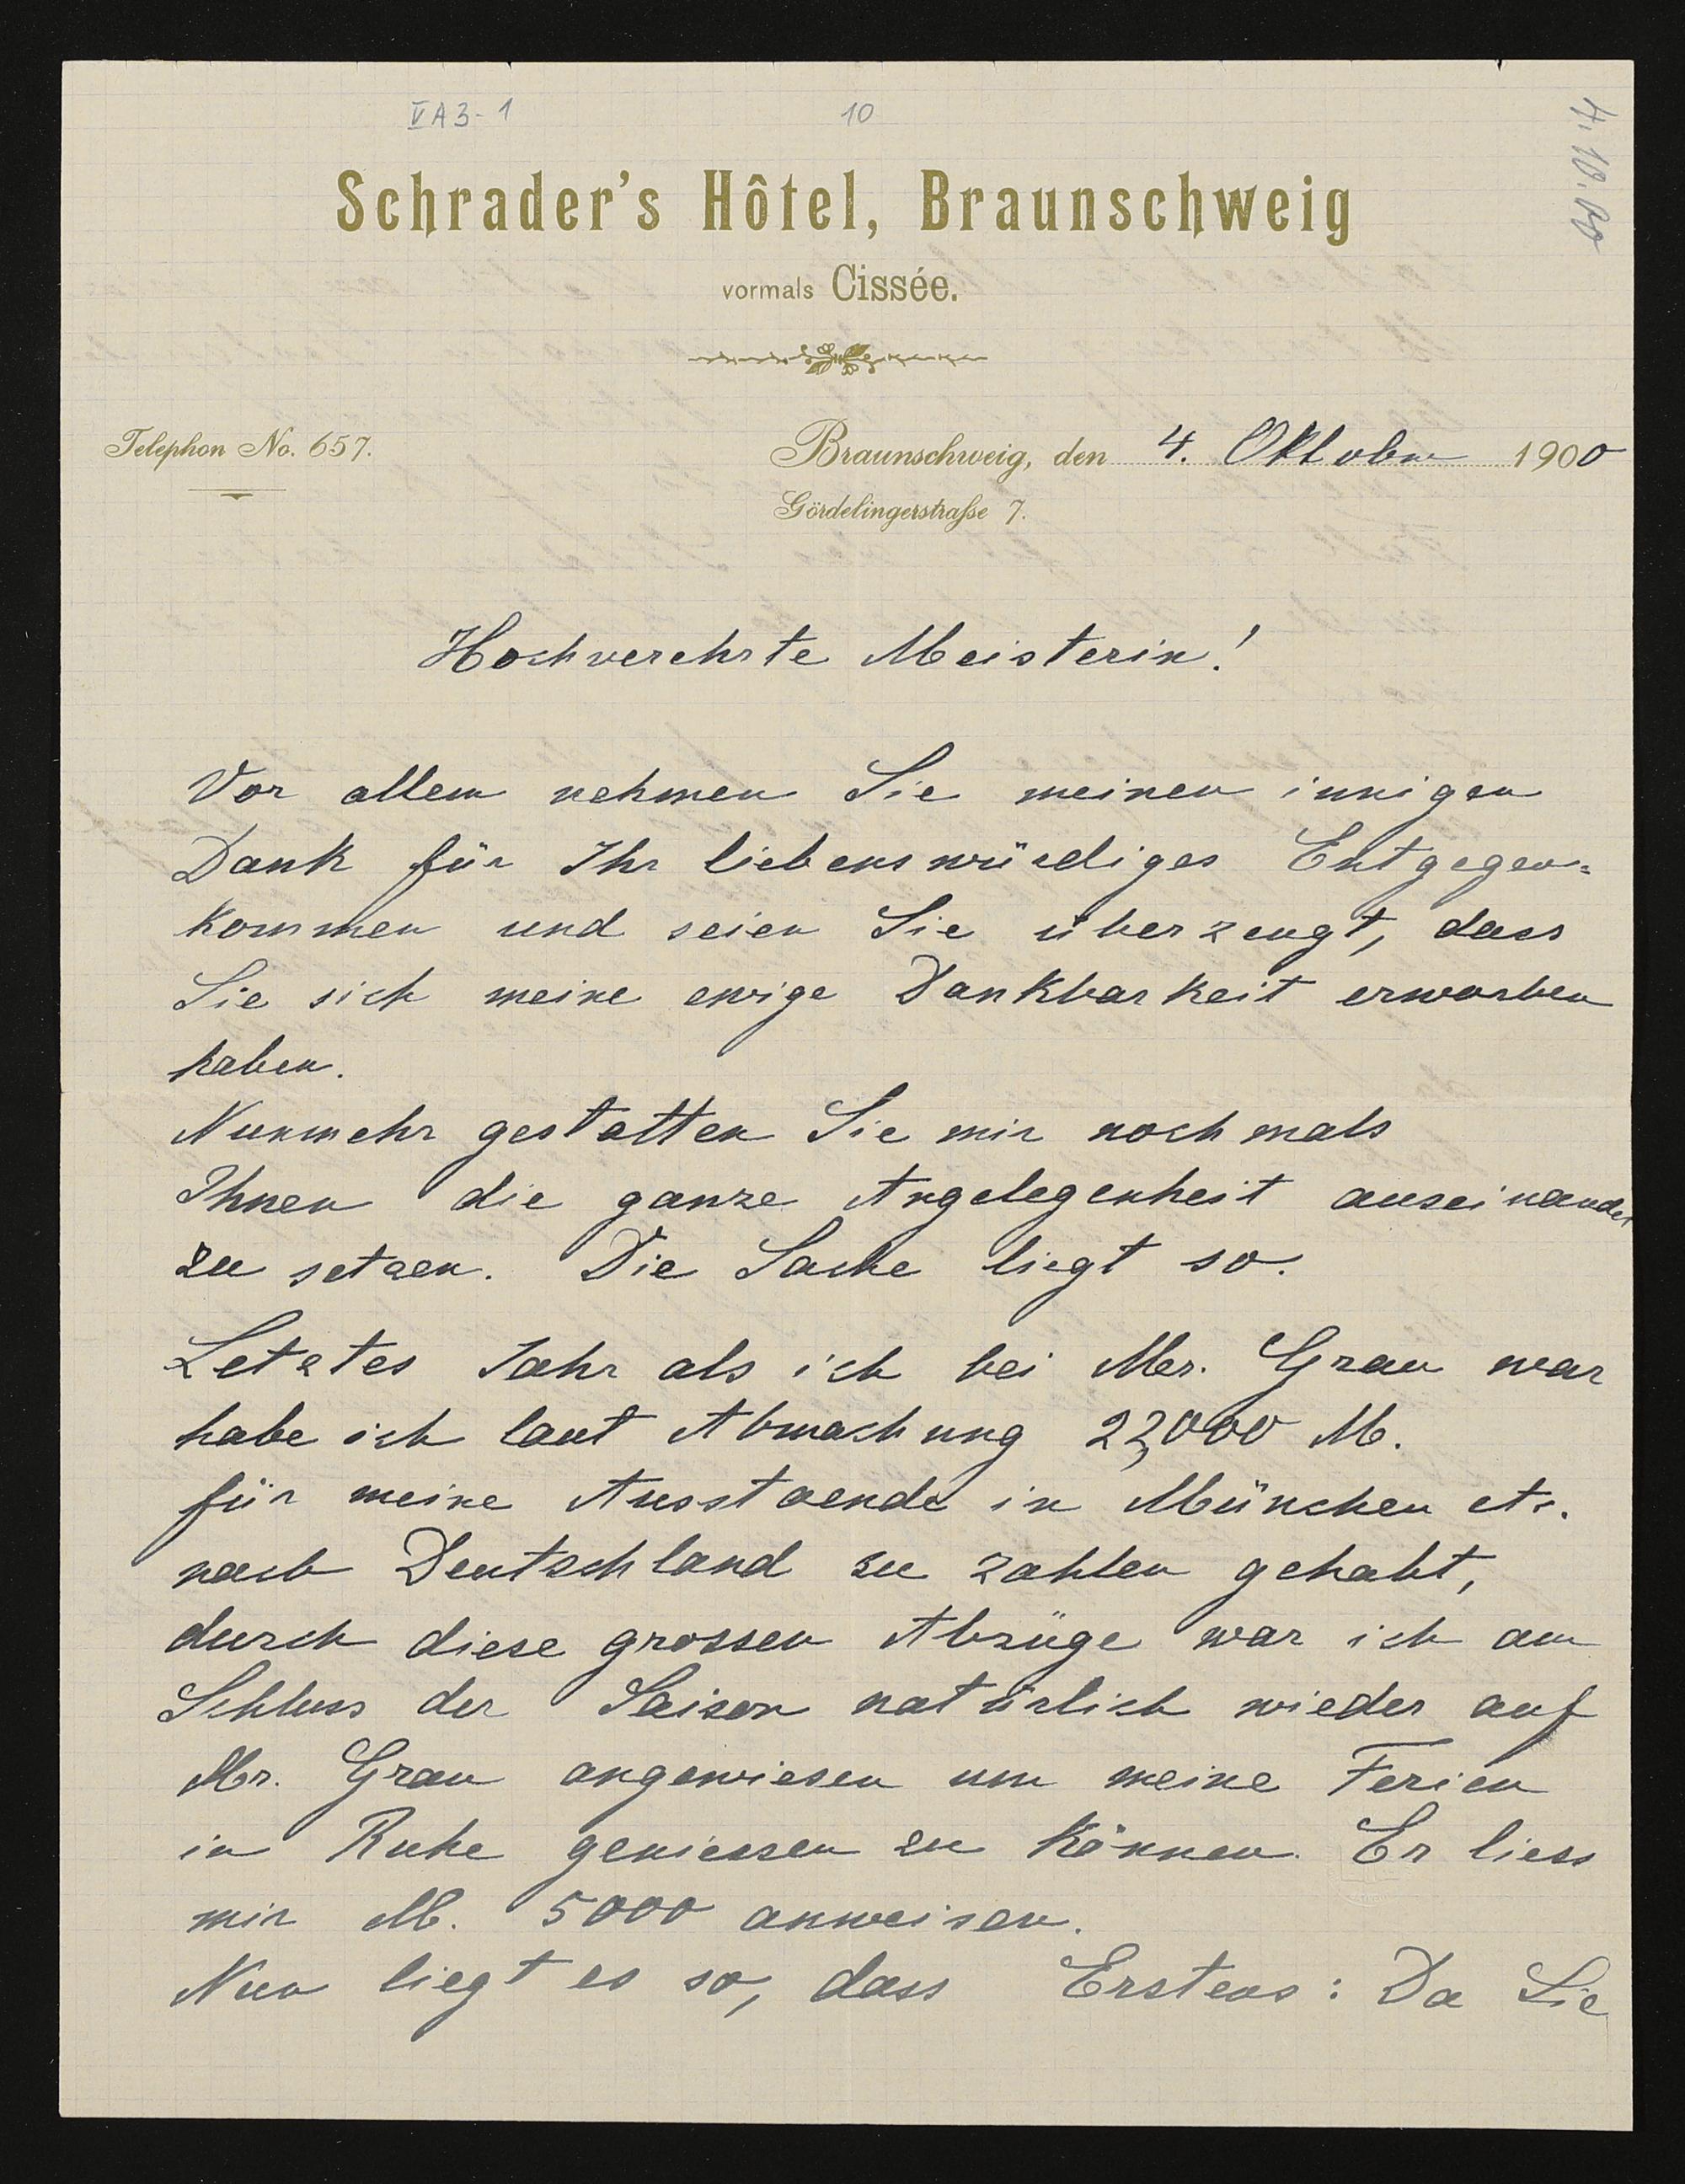 V A 3 - 1
10
4. 10. 00
Schrader's Hôtel, Braunschweig
vormals Cissée.
Telephon No. 657.
Braunschweig, den 4. Oktober 1900
Gördelingerstraße 7.
Hochverehrte Meisterin!
Vor allem nehmen Sie meinen innigen
Dank für Ihr liebenswürdiges Entgegen=
kommen und seien Sie überzeugt, dass
Sie sich meine ewige Dankbarkeit erworben
haben.
Nunmehr gestatten Sie mir nochmals
Ihnen die ganze Angelegenheit auseinander
zu setzen. Die Sache liegt so.
Letztes Jahr als ich bei Mr. Grau war
habe ich laut Abmachung 22,000 M.
für meine Ausstaende in München etc.
nach Deutschland zu zahlen gehabt,
durch diese grossen Abzüge war ich am
Schluss der Saison natürlich wieder auf
Mr. Grau angewiesen um meine Ferien
in Ruhe geniessen zu können. Er liess
mir M. 5000 anweisen.
Nun liegt es so, dass Erstens: Da Sie